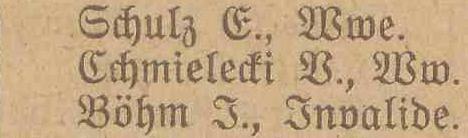 Schulz E., Wwe.
Cchmielecki V., Ww.
Böhm J., Invalide.